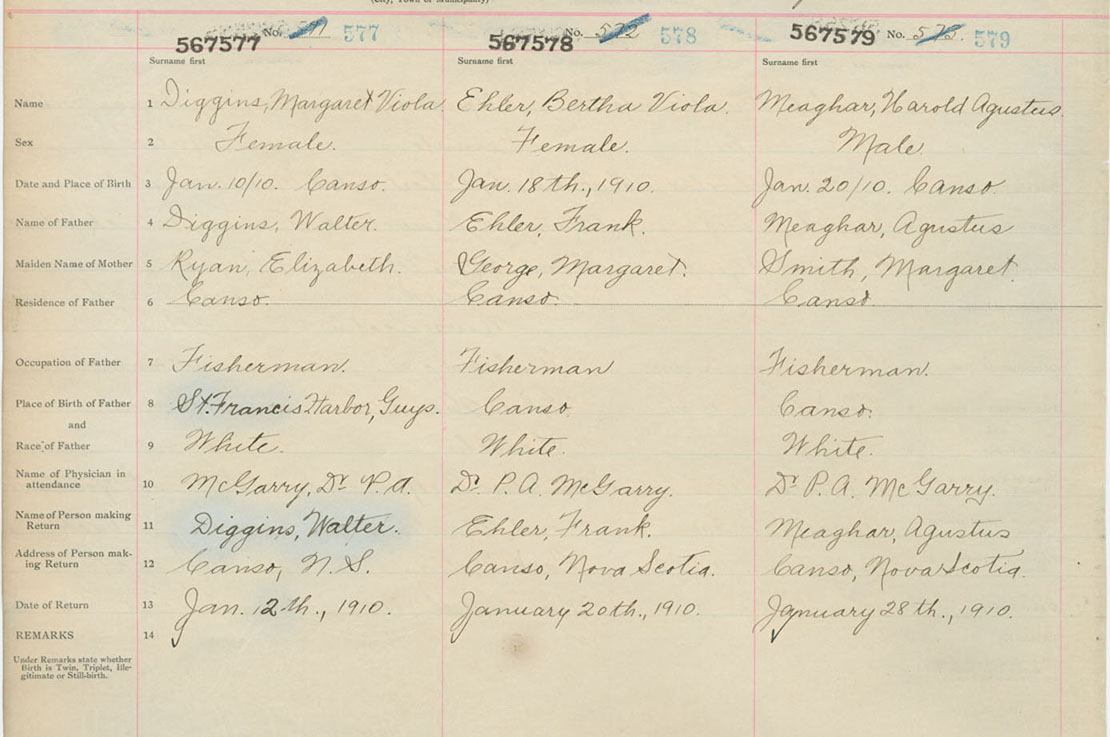 (City, Town or Municipality)
567577 No. 577
567578 No. 572 578
567579 No. 573. 579
Surname first Surname first Surname first
Name 1 Diggins, Margaret Viola Ehler, Bertha Viola. Meaghar, Harold Agustus.
Sex 2 Female. Female. Male.
Date and Place of Birth 3 Jan. 10/10. Canso. Jan. 18th., 1910. Jan. 20/10. Canso
Name of Father 4 Diggins, Walter. Ehler, Frank. Meaghar, Agustus
Maiden Name of Mother 5 Ryan, Elizabeth. George, Margaret. Smith, Margaret
Residence of Father 6 Canso. Canso. Canso.
Occupation of Father 7 Fisherman. Fisherman Fisherman.
Place of Birth of Father 8 St. Francis Harbor, Guys. Canso Canso.
and
Race of Father 9 White. White. White.
Name of Physician in
attendance 10 McGarry, Dr P.A. Dr. P.A. McGarry. Dr P.A. McGarry.
Name of Person making
Return 11 Diggins, Walter. Ehler, Frank. Meaghar, Agustus
Address of Person mak-
ing Return 12 Canso, N.S. Canso, Nova Scotia. Canso, Nova Scotia.
Date of Return 13 Jan. 12th., 1910. January 20th., 1910. January 28th., 1910.
REMARKS 14
Under Remarks state whether
Birth is Twin, Triplet, Ille-
gitimate or Still-birth.